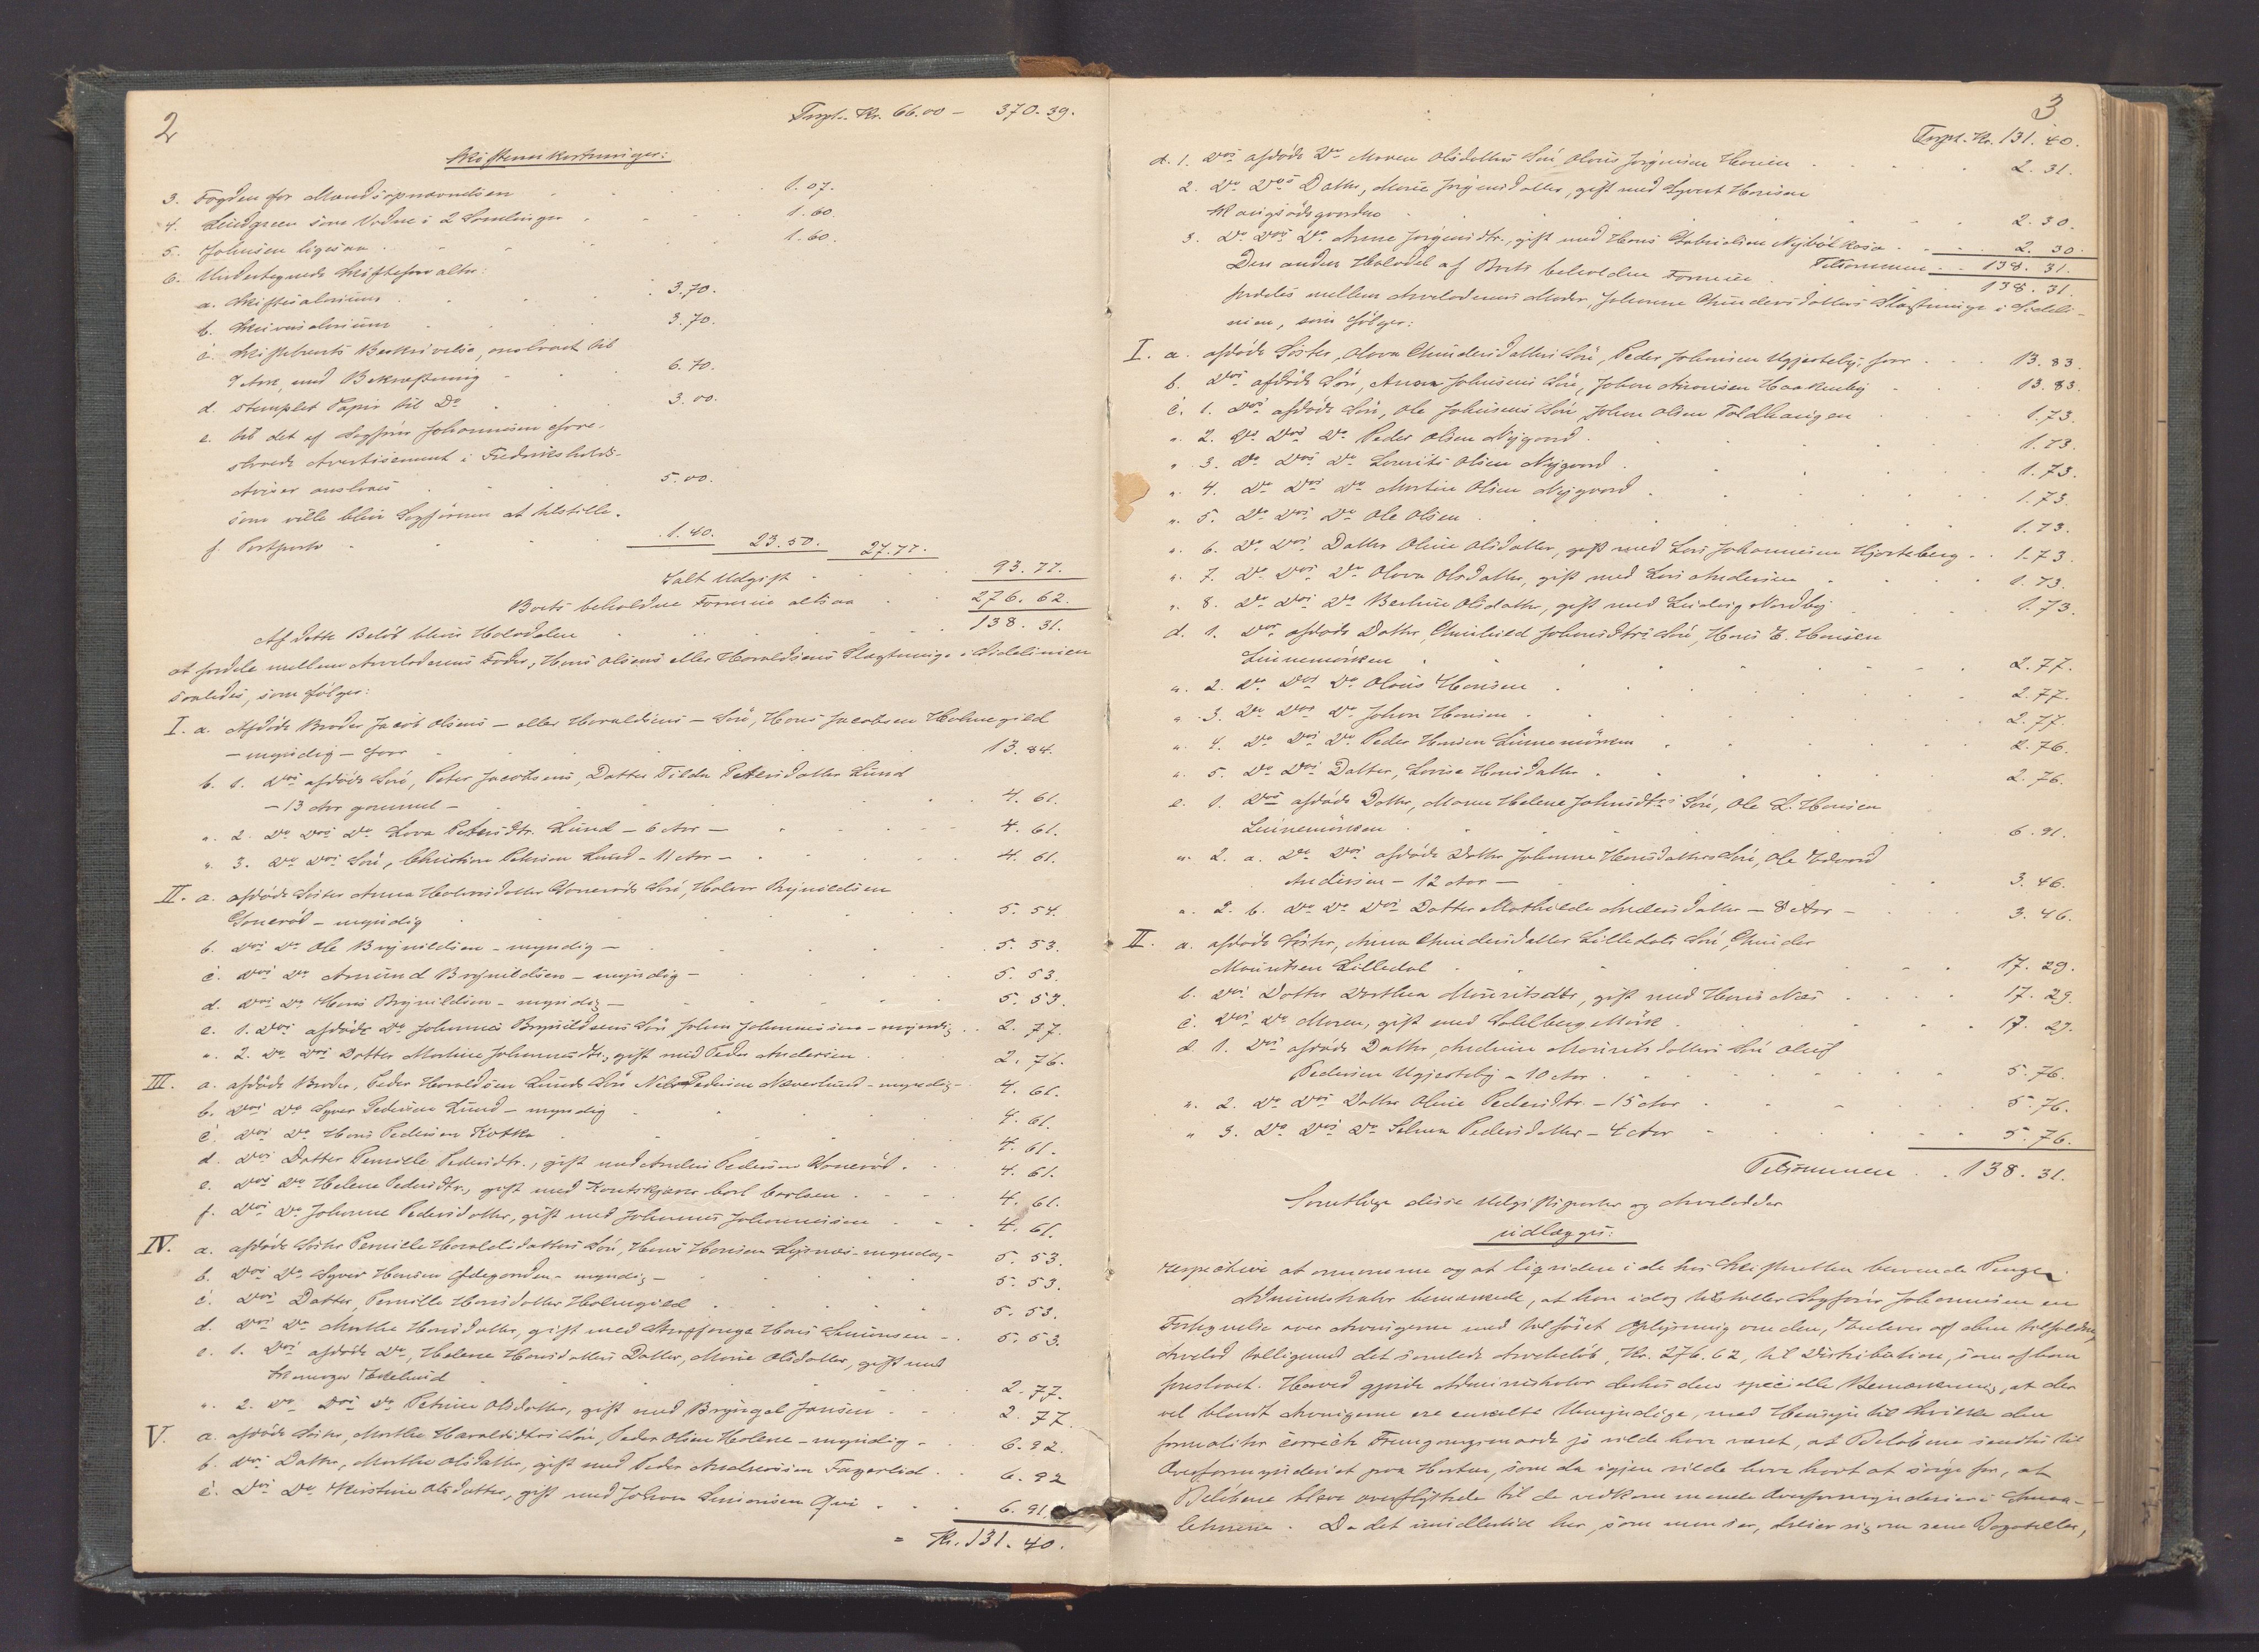 2
Trspt. Kr. 66.00 — 370.39.
Skifteomkostninger:
3. Fogden for Mandsopnævnelsen 1.07.
4. Lindgreen som Vidne i 2 Samlinger 1.60.
5. Johnsen ligesaa 1.60.
6. Undertegnede Skifteforvalter:
a. Skiftesalarium 3.70.
b. Skriversalarium 3.70.
c. Skiftebrevets Beskrivelse, anslaaet til
7 Ark, med Bekræftning 6.70.
d. stemplet Papir til Do 3.00.
e. til det af Sagfører Johannesen fore-
slaaede Avertissement i Fredrikshalds-
Aviser anslaaes 5.00.
som ville blive Sagføreren at tilstille.
f. Postporto 1.40. 23.50. 27.77.
Ialt Udgift 93.77.
Boets beholdne Formue altsaa 276.62.
Af dette Beløb blive Halvdelen 138.31.
at fordele mellem Arveladerens Fader, Hans Olsens eller Haraldsens Slægtninge i Sidelinien
saaledes, som følger:
I. a. Afdøde Broder Jacob Olsens — eller Haraldsens — Søn, Hans Jacobsen Holmegild
— myndig — faar 13.84.
b. 1. Des afdøde Søn, Peter Jacobsens, Datter Tilda Petersdatter Lund
— 13 Aar gammel — 4.61.
" 2. Do Des Do Lova Petersdtr. Lund — 6 Aar — 4.61.
" 3. Do Des Søn, Christian Petersen Lund — 11 Aar — 4.61.
II. a. afdøde Søster Anna Halvorsdatter Sønerøds Søn, Halvor Brynildsen
Sønerød — myndig 5.54.
b. Des Do Ole Brynildsen — myndig — 5.53.
c. Des Do Amund Brynildsen — myndig — 5.53.
d. Des Do Hans Brynildsen — myndig — 5.53.
e. 1. Des afdøde Do Johannes Brynildsens Søn Johan Johannesen — myndig 2.77.
" 2. Do Des Datter Martine Johannesdtr., gift med Peder Andersen 2.76.
III. a. afdøde Broder, Peder Haraldsen Lunds Søn Nils Pedersen Næverlund — myndig — 4.61.
b. Des Do Syver Pedersen Lund — myndig 4.61.
c. Des Do Hans Pedersen Kotka 4.61.
d. Des Datter Pernille Pedersdtr., gift med Anders Pedersen Sønerød 4.61.
e. Des Do Helene Pedersdtr., gift med Karl Carlsen 4.61.
f. Des Do Johanne Pedersdatter, gift med Johannes Johannesen 4.61.
IV. a. afdøde Søster Pernille Haraldsdatters Søn, Hans Hansen — myndig — 5.53.
b. Des Do Syver Hansen Ødegaarden — myndig — 5.53.
c. Des Datter, Pernille Hansdatter Holmegild 5.53.
d. Des Do Marthe Hansdatter, gift med Hans Simonsen 5.53.
e. 1. Des afdøde Do, Helene Hansdatters Datter, Marie Olsdatter, gift med
2.77.
" 2. Do Des Do Petrine Olsdatter, gift med Bryngel Jansen 2.77.
V. a. afdøde Søster, Marthe Haraldsdtrs Søn, Peder Olsen Holene — myndig — 6.92.
b. Des Datter, Marthe Olsdatter, gift med Peder Andreassen Fagerlid 6.92
c. Des Do Kirstine Olsdatter, gift med Johan Simonsen 6.91.
= Kr. 131.40.
3
Trspt. Kr. 131.40.
d. 1. Des afdøde Do Maren Olsdatters Søn Olaus Jørgensen 2.31.
2. Do Des Datter, Marie Jørgensdatter, gift med Syvert Hansen
2.30.
3. Do Des Do Anne Jørgensdtr., gift med Hans Gabrielsen 2.30.
Tilsammen 138.31.
Den anden Halvdel af Boets beholdne Formue 138.31.
fordeles mellem Arveladerens Moder, Johanne Gundersdatters Slægtninge i Sideli-
nien, som følger:
I. a. afdøde Søster, Olava Gundersdatters Søn, Peder Johansen Ugjesteby faar 13.83.
b. Des afdøde Søn, Anton Johnsens Søn, Johan Antonsen Haakenby 13.83.
c. 1. Des afdøde Søn, Ole Johnsens Søn Johan Olsen Foldhaugen 1.73.
" 2. Do Des Do Peder Olsen Nygaard 1.73.
" 3. Do Des Do Laurits Olsen Nygaard 1.73.
" 4. Do Des Do Martin Olsen Nygaard 1.73.
" 5. Do Des Do Ole Olsen 1.73.
" 6. Do Des Datter Oline Olsdatter, gift med Lars Johannesen Hjorteberg 1.73.
" 7. Do Des Do Olava Olsdatter, gift med Lars Andersen 1.73.
" 8. Do Des Do Berthine Olsdatter, gift med Ludvig Nordby 1.73.
d. 1. Des afdøde Datter, Gunhild Johnsdtrs Søn, Hans E. Hansen
Linnemørken 2.77.
" 2. Do Des Do Olaus Hansen 2.77.
" 3. Do Des Do Johan Hansen 2.77.
" 4. Do Des Do Peder Hansen Linnemørken 2.76.
" 5. Do Des Datter, Lovise Hansdatter 2.76.
e. 1. Des afdøde Datter, Maren Helene Johnsdtrs Søn, Ole L. Hansen
Linnemørken 6.91.
" 2. a. Do Des afdøde Datter Johanne Hansdatters Søn, Ole Edvard
Andersen — 12 Aar — 3.46.
" 2. b. Do Do Des Datter Mathilde Andersdatter — 8 Aar — 3.46.
II. a. afdøde Søster, Anna Gundersdatter Lilledals Søn, Gunder
Mauritsen Lilledal 17.29.
b. Des Datter Dorthea Mauritsdtr, gift med Hans Næs 17.29.
c. Des Do Maren, gift med Solberg Mørk 17.29.
d. 1. Des afdøde Datter, Andrine Mauritsdatters Søn Oluf
Pedersen Ugjesteby — 10 Aar 5.76.
" 2. Do Des Datter Oline Pedersdtr. — 15 Aar 5.76.
" 3. Do Des Do Selma Pedersdatter — 4 Aar 5.76.
Tilsammen 138.31.
Samtlige disse Udgiftsposter og Arvelodder
udlægges:
respective at annamme og at liqvidere i de hos Skifteretten beroende Penge.
Administrator bemærkede, at han idag tilstiller Sagfører Johannesen en
Fortegnelse over Arvingerne med tilføiet Oplysning om den, Enhver af dem tilfaldne,
Arvelod tilligemed det samlede Arvebeløb, Kr. 276.62, til Distribution, som af ham
foreslaaet. Herved gjorde Administrator derhos den specielle Bemærkning, at der
vel blandt Arvingerne ere enkelte Umyndige, med Hensyn til hvilke den
formelitér correcte Fremgangsmaade jo vilde have været, at Beløbene sendtes til
Overformynderiet paa Horten, som da igjen vilde have havt at sørge for, at
Beløbene bleve overflyttede til de vedkommende Overformynderier i Smaa-
lehnene. Da det imidlertid her, som man ser, dreier sig om rene Bagateller,